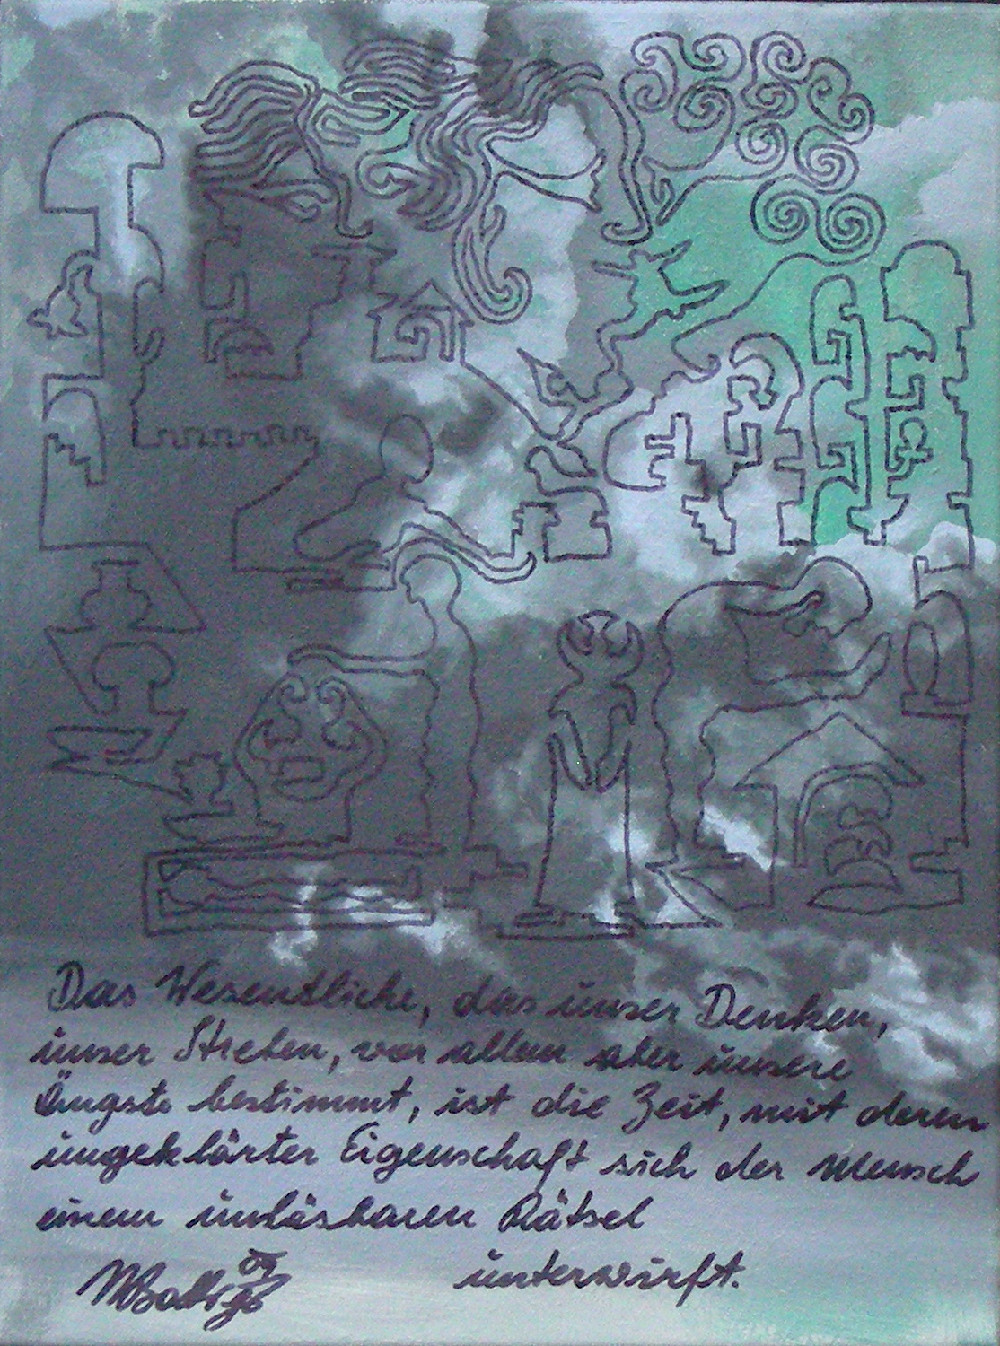 Das Wesentliche, das unser Denken,
unser Streben, vor allem aber unsere
Ängste bestimmt, ist die Zeit, mit deren
ungeklärter Eigenschaft sich der Mensch
einem unlösbaren Rätsel
unterwirft.